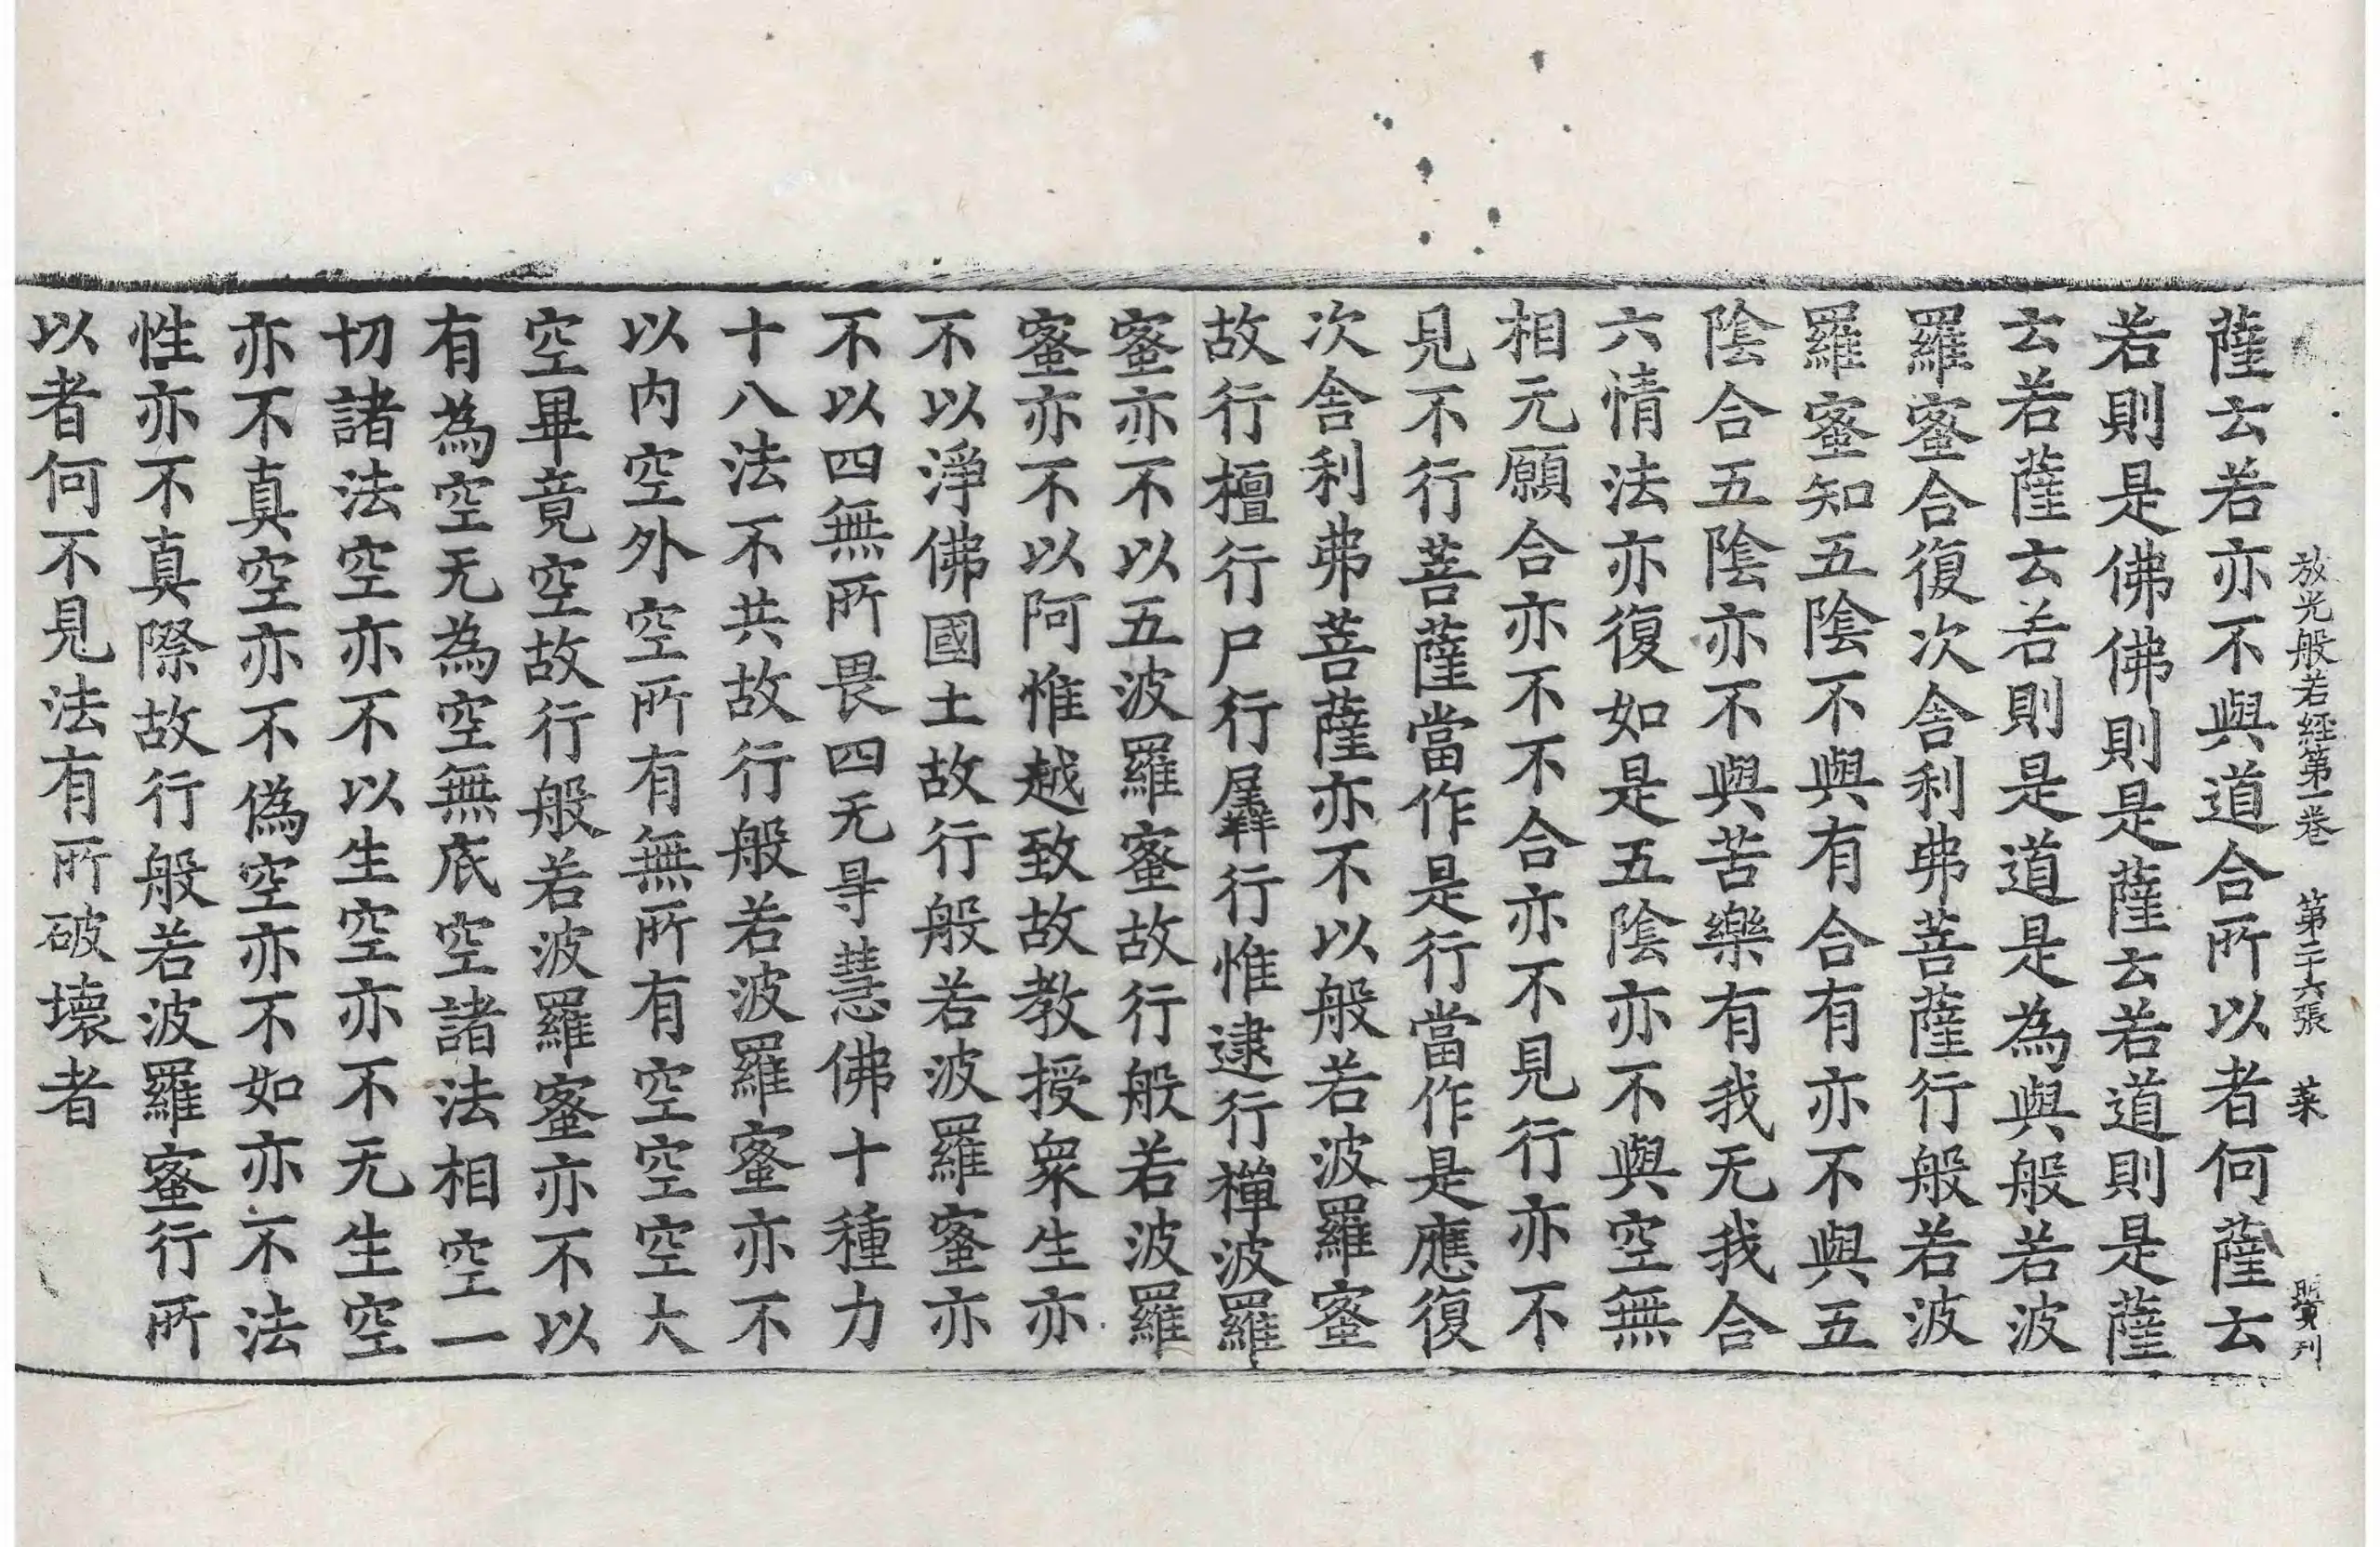 放光般若経第一巻　第二十六張　菜　賢刊
薩云若亦不與道合所以者何薩云
若則是佛佛則是薩云若道則是薩
云若薩云若則是道是為與般若波
羅蜜合復次舍利弗菩薩行般若波
羅蜜知五陰不與有合有亦不與五
陰合五陰亦不與苦樂有我无我合
六情法亦復如是五陰亦不與空無
相元願合亦不不合亦不見行亦不
見不行菩薩當作是行當作是應復
次舍利弗菩薩亦不以般若波羅蜜
故行檀行尸行羼行惟逮行禪波羅
蜜亦不以五波羅蜜故行般若波羅
蜜亦不以阿惟越致故教授衆生亦
不以淨佛國土故行般若波羅蜜亦
不以四無所畏四无㝵慧佛十種力
十八法不共故行般若波羅蜜亦不
以内空外空所有無所有空空空大
空畢竟空故行般若波羅蜜亦不以
有為空无為空無底空諸法相空一
切諸法空亦不以生空亦不无生空
亦不真空亦不偽空亦不如亦不法
性亦不真際故行般若波羅蜜行所
以者何不見法有所破壞者